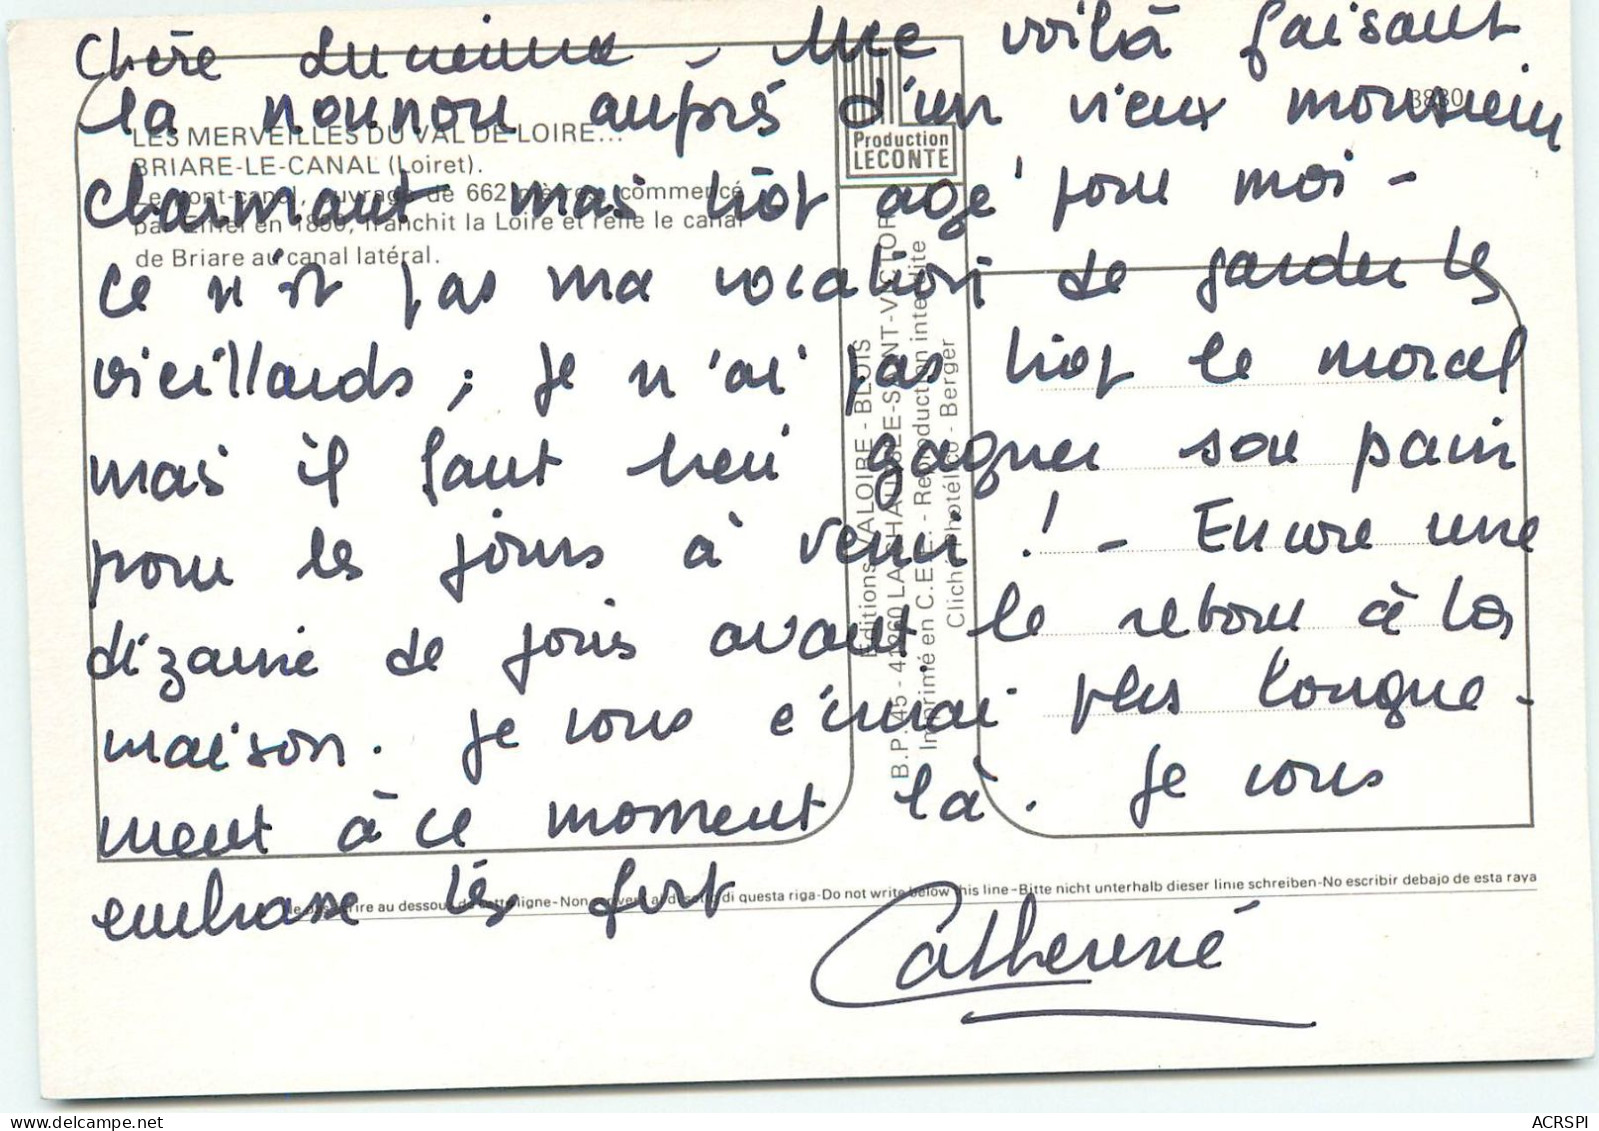 Chère Lucienne, Me voilà faisant
la nounou auprès d'un vieux monsieur
charmant mais trop agé pour moi -
ce n'est pas ma vocation de garder les
vieillards ; je n'ai pas trop le moral
mais il faut bien gagner son pain
pour les jours à venir ! - Encore une
dizaine de jours avant le retour à la
maison. Je vous écrirai plus longue-
ment à ce moment là. Je vous
embrasse très fort
Catherine
LES MERVEILLES DU VAL DE LOIRE...
BRIARE-LE-CANAL (Loiret).
Le pont-canal, ouvrage de 662 mètres, commencé
par Eiffel en 1890, franchit la Loire et relie le canal
de Briare au canal latéral.
Production
LECONTE
Editions VALOIRE - BLOIS
B.P. 45 - 41260 LA CHAUSSÉE-SAINT-VICTOR
Imprimé en C.E.E. - Reproduction interdite
Cliché Photélico - Berger
Ne pas écrire au dessous de cette ligne-Non scrivere al disotto di questa riga-Do not write below this line-Bitte nicht unterhalb dieser linie schreiben-No escribir debajo de esta raya
ACRSPI